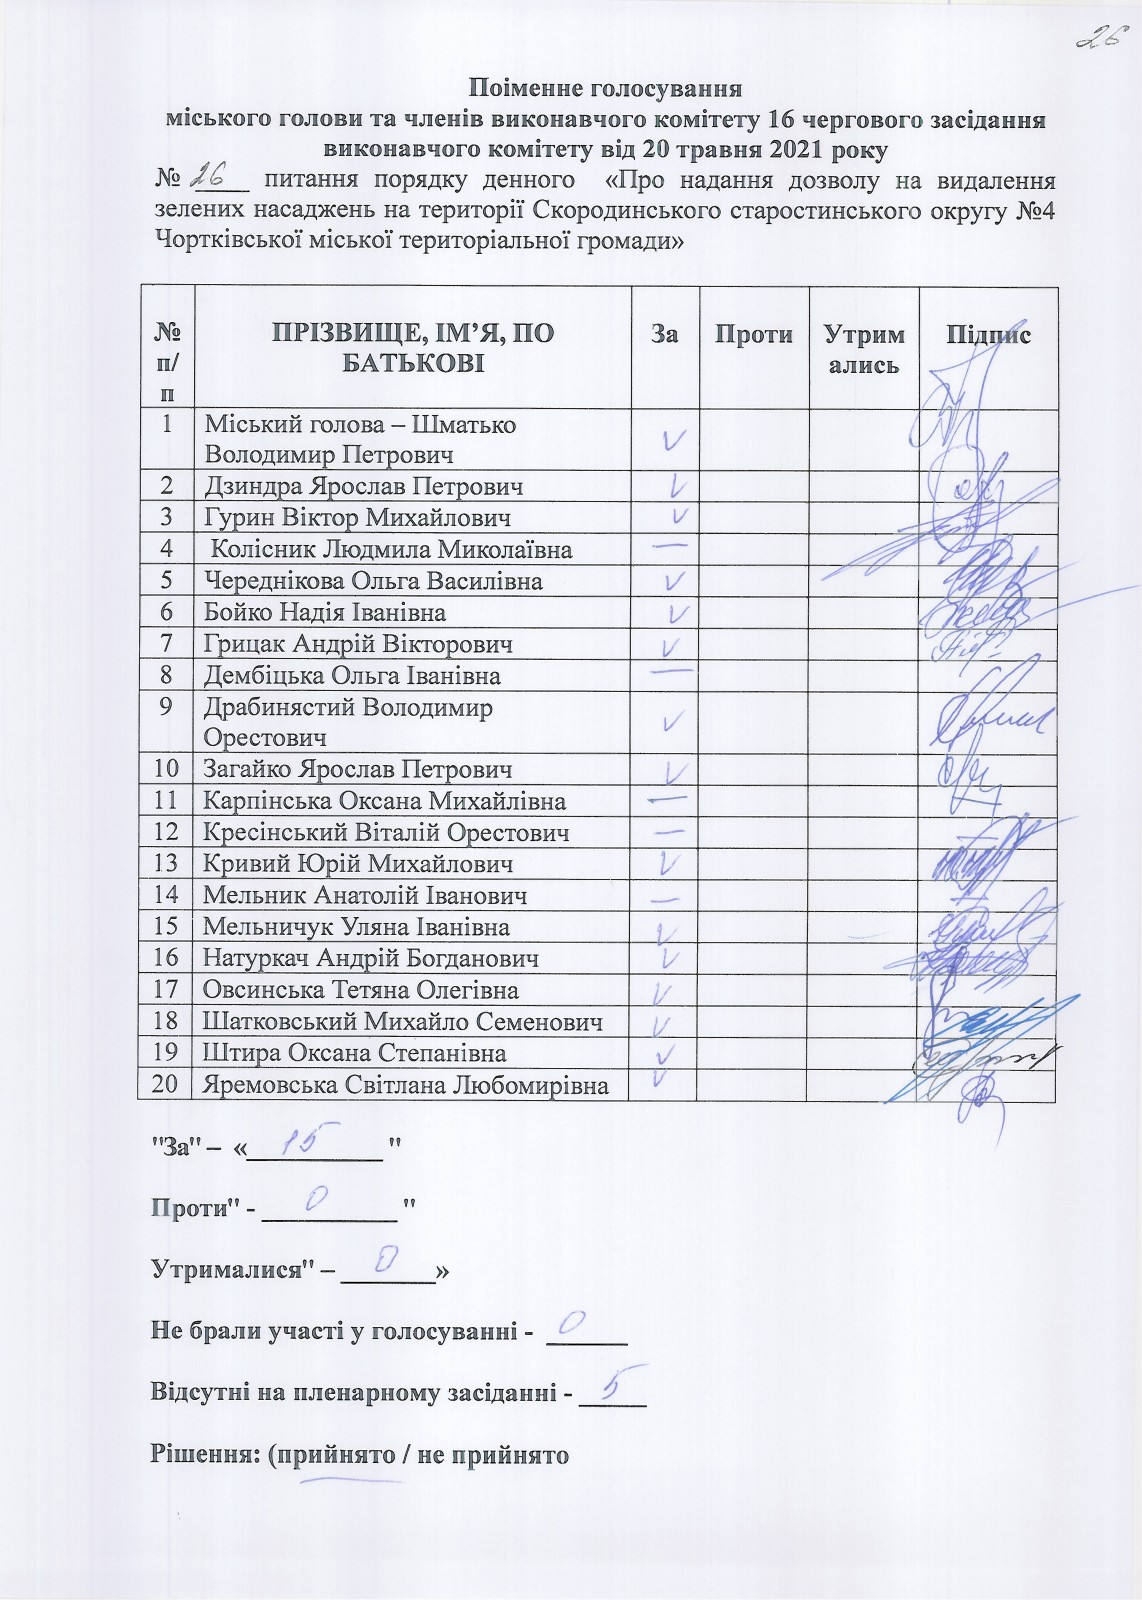 26
Поіменне голосування
міського голови та членів виконавчого комітету 16 чергового засідання
виконавчого комітету від 20 травня 2021 року
№ 26 питання порядку денного «Про надання дозволу на видалення
зелених насаджень на території Скородинського старостинського округу №4
Чортківської міської територіальної громади»
№ п/п ПРІЗВИЩЕ, ІМ’Я, ПО БАТЬКОВІ За Проти Утримались Підпис
1 Міський голова – Шматько
Володимир Петрович V
2 Дзиндра Ярослав Петрович V
3 Гурин Віктор Михайлович V
4 Колісник Людмила Миколаївна —
5 Череднікова Ольга Василівна V
6 Бойко Надія Іванівна V
7 Грицак Андрій Вікторович V
8 Дембіцька Ольга Іванівна —
9 Драбинястий Володимир
Орестович V
10 Загайко Ярослав Петрович V
11 Карпінська Оксана Михайлівна —
12 Кресінський Віталій Орестович —
13 Кривий Юрій Михайлович V
14 Мельник Анатолій Іванович —
15 Мельничук Уляна Іванівна V
16 Натуркач Андрій Богданович V
17 Овсинська Тетяна Олегівна V
18 Шатковський Михайло Семенович V
19 Штира Оксана Степанівна V
20 Яремовська Світлана Любомирівна V
"За" – « 15 "
Проти" - 0 "
Утрималися" – 0 »
Не брали участі у голосуванні - 0
Відсутні на пленарному засіданні - 5
Рішення: (прийнято / не прийнято